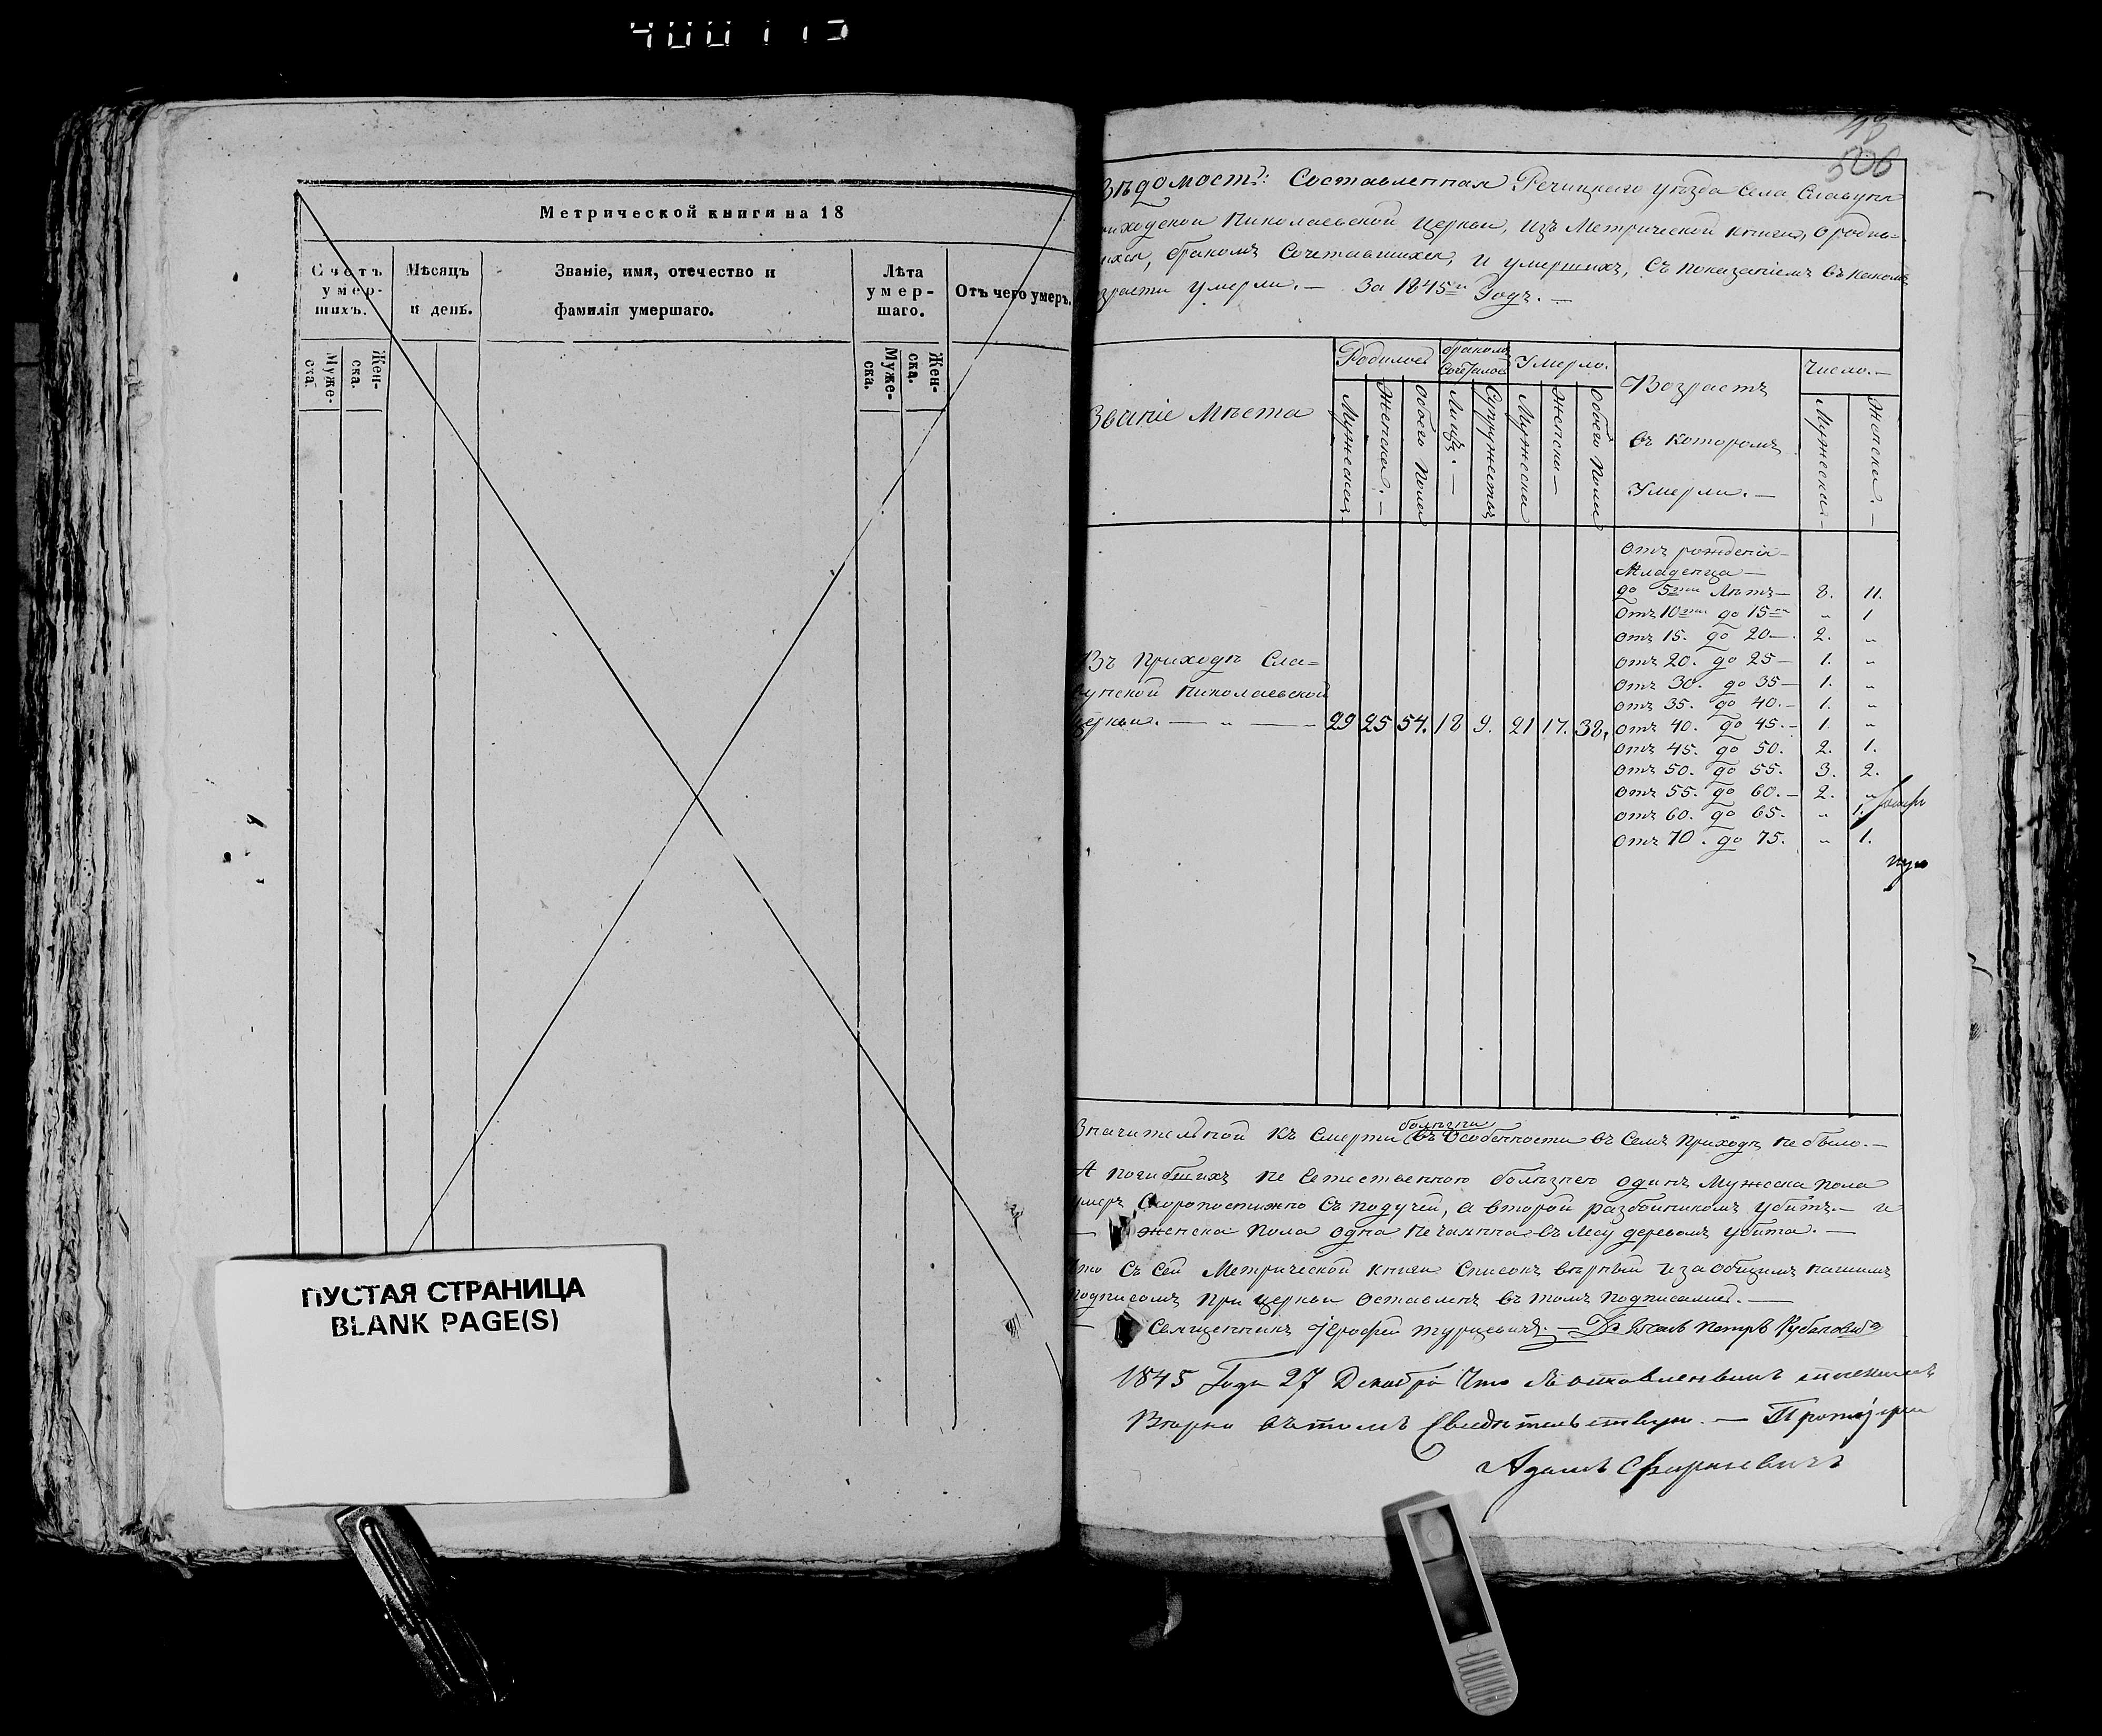 Метрической книги на 18
Счетъ умер-шихъ.
Мѣсяцъ и день.
Званіе, имя, отечество и фамилія умершаго.
Лѣта умер-шаго.
Отъ чего умеръ.
Муже-ска.
Жен-ска.
Муже-ска.
Жен-ска.
ПУСТАЯ СТРАНИЦА
BLANK PAGE(S)
506
Вѣдомость: Составленная Речицкого уѣзда Села
Николаевской Церкви, изъ Метрической книги, о родив-
шихся, бракомъ Сочетавшихся, и умершихъ, Съ показаніемъ въ какомъ
умерли. — За 1845й Годъ. —
Званіе Мѣста
Родилось
бракомъ
Умерло.
Возрастъ
въ которомъ
Умерли. —
Число. —
Мужеска
Женска. —
Обоего пола
Лицъ. —
Супружествъ
Мужеска
Женска —
Обоего пола
Мужеска —
Женска. —
Отъ рожденія —
Младенца —
до 5ти Лѣтъ — 8. 11.
Отъ 10ти до 15ти „ 1
отъ 15. до 20 —. 2. „
отъ 20. до 25 — 1. „
отъ 30. до 35 — 1. „
отъ 35. до 40. — 1. „
отъ 40. до 45. — 1. „
отъ 45. до 50. 2. 1.
отъ 50. до 55. 3. 2.
отъ 55. до 60. — 2. „
отъ 60. до 65. „ 1.
отъ 70. до 75. „ 1.
Въ Приходѣ Сла-
Николаевской
Церкви. — „ — 29 25 54. 18 9. 21 17. 38.
Значительной къ Смерти болѣзни въ Особенности въ Семъ Приходѣ не было. —
А погибшихъ не Естественною болѣзнею одинъ Мужеска пола
умеръ Скоропостижно Съ падучей, а второй разбойникомъ убитъ. — и
— женска пола одна нечаянна въ Лесу деревомъ убита. —
Что Съ Сей Метрической книги Списокъ вѣрный и за общимъ нашимъ
подписомъ при церкви оставленъ въ томъ подписались. —
Священникъ Іерофей Турцевичъ. — Петръ
1845 Года 27 Декабря Что
Вѣрно въ томъ Свидѣтельствую. — Протоіерей
Адамъ